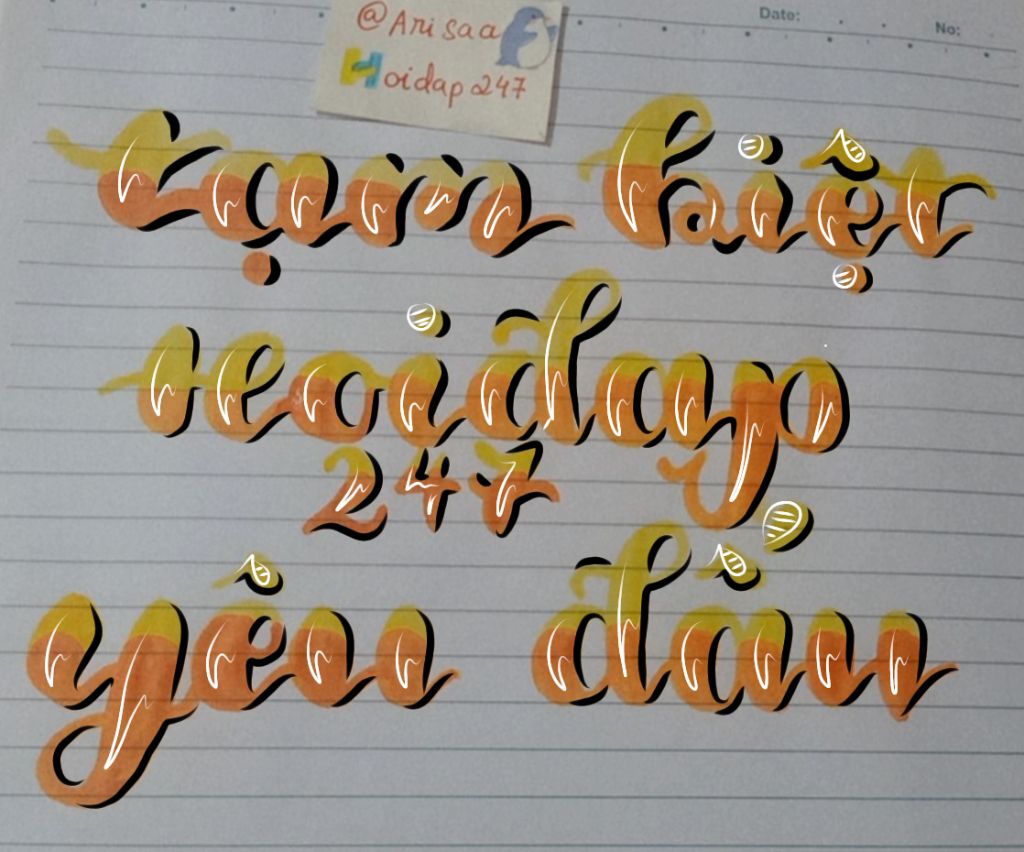 Date:
No:
@Arisaa
Hoidap247
tạm biệt
Hoidap
247
yêu dấu